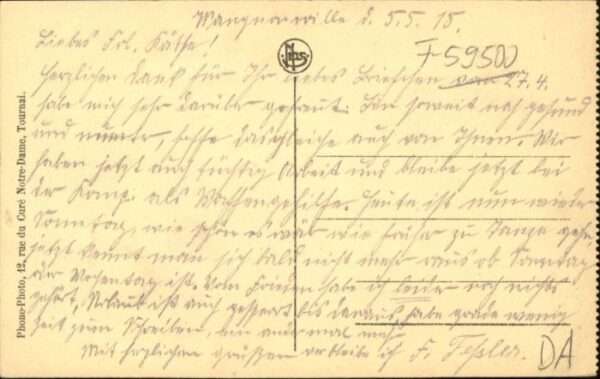 d. 5.5.15.
Liebes Frl. Käthe!
F 59500
Herzlichen Dank für Ihr liebes Briefchen von 27.4.
habe mich sehr darüber gefreut. Bin soweit noch gesund
und munter, hoffe dasgleiche auch von Ihnen. Wir
haben jetzt auch tüchtig Arbeit und bleibe jetzt bei
der Komp. als . Heute ist nun wieder
Sonntag, wie schön es wär wie früher zu Tanze gehn,
jetzt kennt man sich bald nicht mehr raus ob Sonntag
der Wochentag ist. Vom Frieden habe ich leider noch nichts
gehört, Urlaub ist auch gesperrt bis daraus, habe grade wenig
Zeit zum Schreiben, ein ander mal mehr
Mit herzlichen Grüßen verbleibe ich F.
DA
Phono-Photo, 12, rue du Curé Notre-Dame, Tournai.